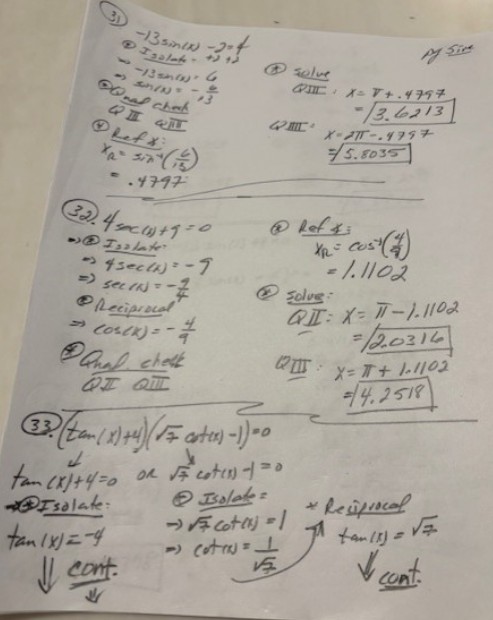 31)
-13 sin(x) - 2 = 4
* Isolate: +2 +2
⇒ -13 sin(x) = 6
⇒ sin(x) = -6/13
* Quad. check
QIII QIIII
* Ref ∡:
x_R = sin⁻¹(6/13)
= .4797
* Solve
QIII: x = π + .4797
= 3.6213
QIIII: x = 2π - .4797
= 5.8035
32. 4 sec(x) + 9 = 0
⇒ * Isolate
⇒ 4 sec(x) = -9
⇒ sec(x) = -9/4
* Reciprocal
⇒ cos(x) = -4/9
* Quad. check
QII QIII
* Ref ∡:
x_R = cos⁻¹(4/9)
= 1.1102
* Solve:
QII: x = π - 1.1102
= 2.0316
QIII: x = π + 1.1102
= 4.2518
33. (tan(x)+4)(√7 cot(x) - 1) = 0
tan(x)+4=0 OR √7 cot(x) - 1 = 0
* Isolate:
tan(x) = -4
⇓ cont.
* Isolate:
⇒ √7 cot(x) = 1
⇒ cot(x) = 1/√7
* Reciprocal
tan(x) = √7
⇓ cont.